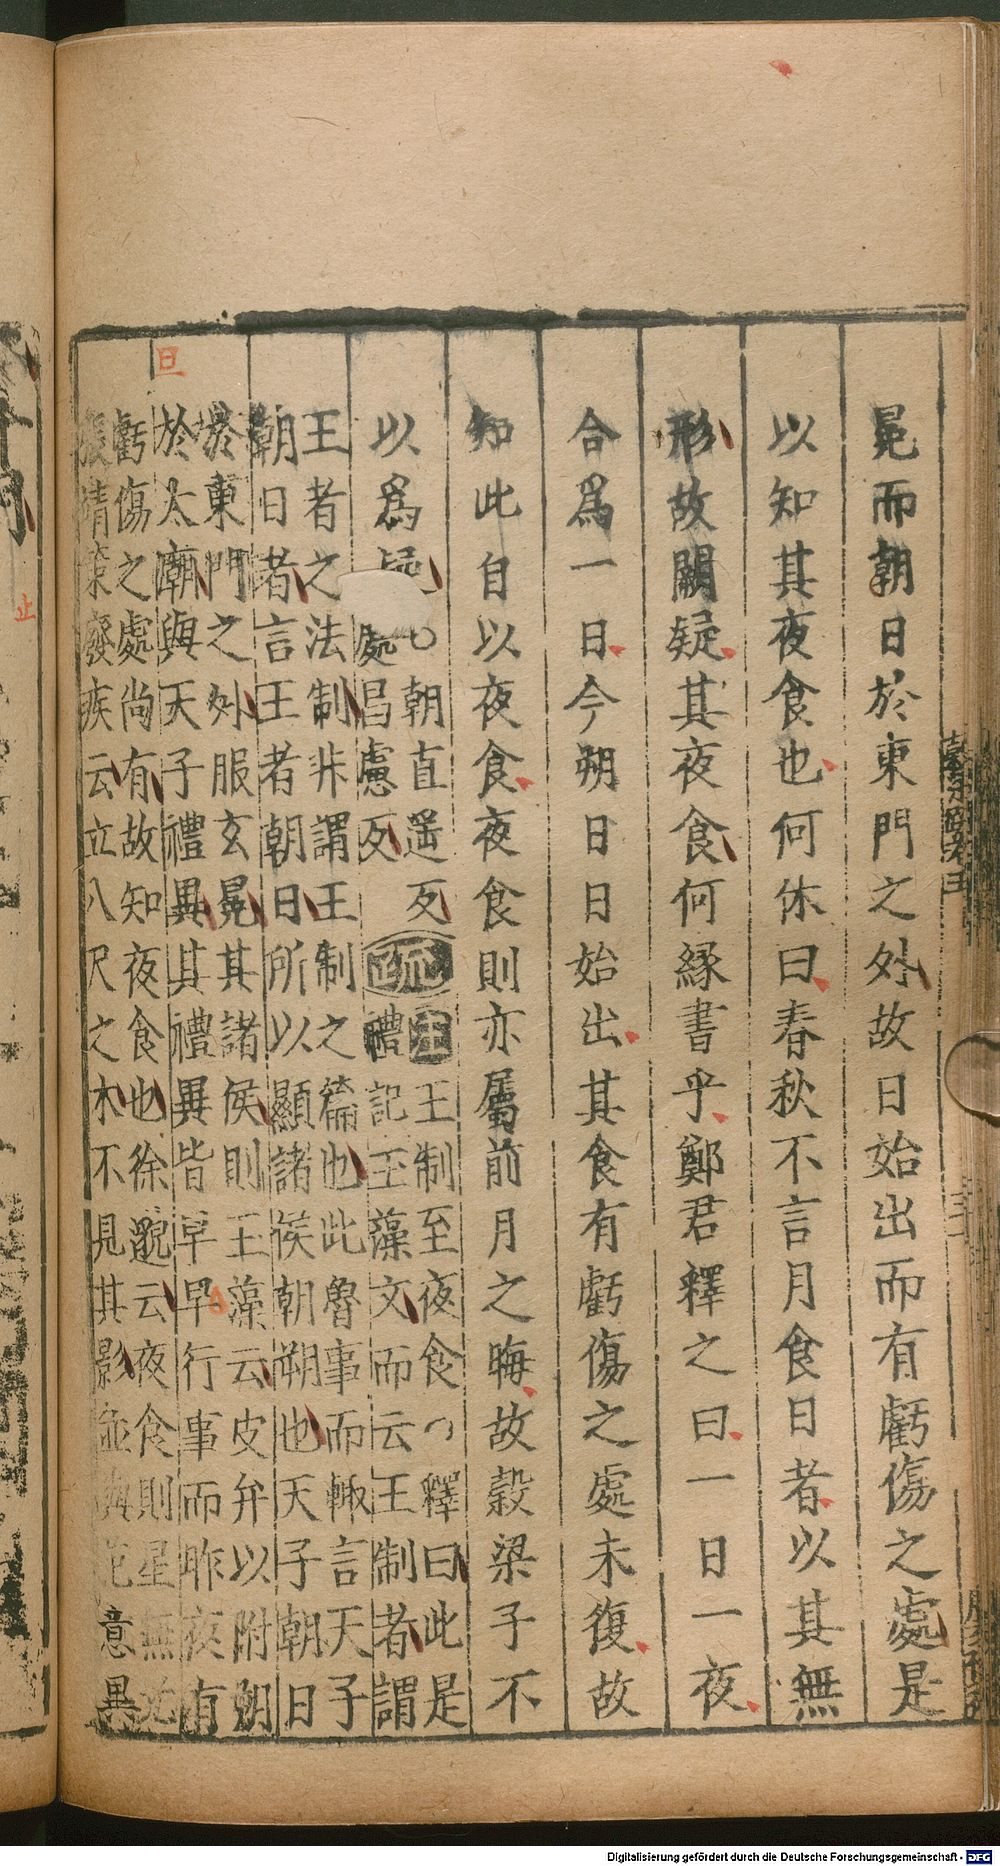 冕而朝日於東門之外故日始出而有虧傷之處是
以知其夜食也何休曰春秋不言月食日者以其無
形故闕疑其夜食何緣書乎鄭君釋之曰一日一夜
合爲一日今朔日日始出其食有虧傷之處未復故
知此自以夜食夜食則亦屬前月之晦故穀梁子不
以爲疑
朝直遥反
處昌慮反
疏
注王制至夜食○釋曰此是
禮記玉藻文而云王制者謂
王者之法制非謂王制之篇也此魯事而輒言天子
朝日者言王者朝日所以顯諸侯朝朔也天子朝日
於東門之外服玄冕其諸侯則玉藻云皮弁以附朔
於太廟與天子禮異其禮異皆早旦行事而昨夜有
虧傷之處尚有故知夜食也徐邈云夜食則星無光
張靖策廢疾云立八尺之木不見其影並與范意異
旦
止
Digitalisierung gefördert durch die Deutsche Forschungsgemeinschaft - DFG